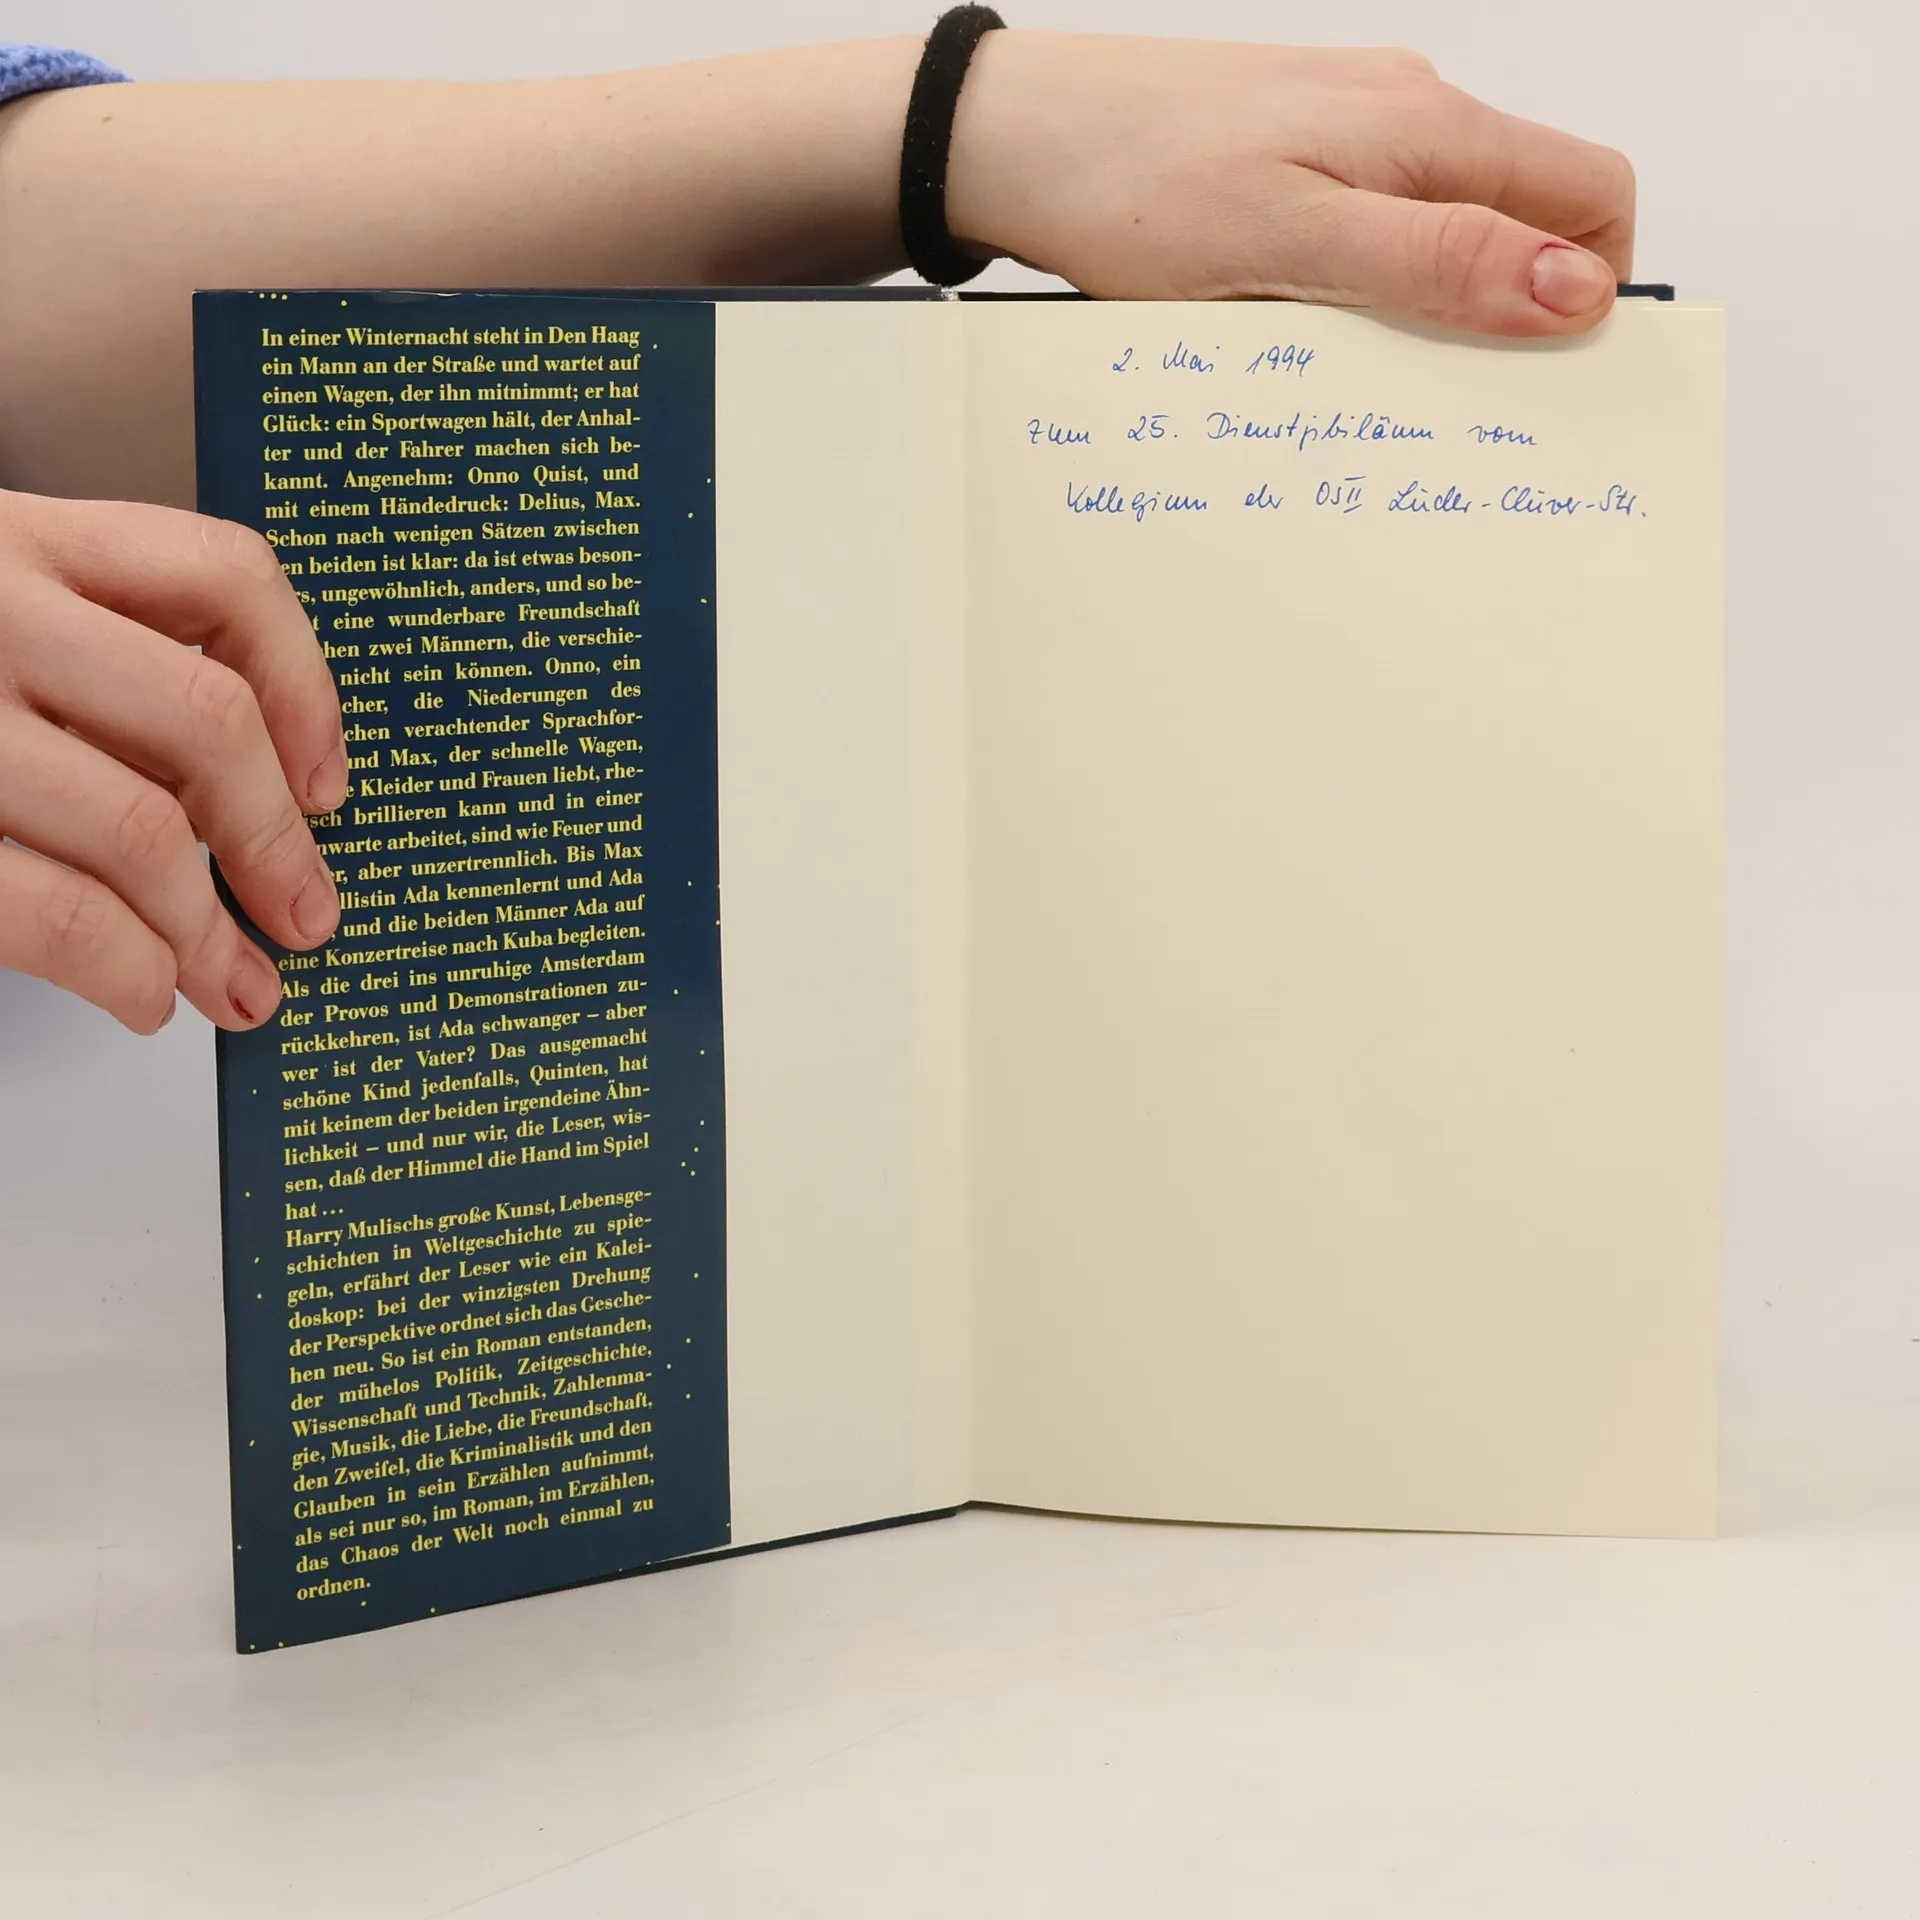 In einer Winternacht steht in Den Haag
ein Mann an der Straße und wartet auf
einen Wagen, der ihn mitnimmt; er hat
Glück: ein Sportwagen hält, der Anhal-
ter und der Fahrer machen sich be-
kannt. Angenehm: Onno Quist, und
mit einem Händedruck: Delius, Max.
Schon nach wenigen Sätzen zwischen
en beiden ist klar: da ist etwas beson-
rs, ungewöhnlich, anders, und so be-
t eine wunderbare Freundschaft
hen zwei Männern, die verschie-
nicht sein können. Onno, ein
cher, die Niederungen des
chen verachtender Sprachfor-
und Max, der schnelle Wagen,
e Kleider und Frauen liebt, rhe-
isch brillieren kann und in einer
nwarte arbeitet, sind wie Feuer und
er, aber unzertrennlich. Bis Max
llistin Ada kennenlernt und Ada
, und die beiden Männer Ada auf
eine Konzertreise nach Kuba begleiten.
Als die drei ins unruhige Amsterdam
der Provos und Demonstrationen zu-
rückkehren, ist Ada schwanger – aber
wer ist der Vater? Das ausgemacht
schöne Kind jedenfalls, Quinten, hat
mit keinem der beiden irgendeine Ähn-
lichkeit – und nur wir, die Leser, wis-
sen, daß der Himmel die Hand im Spiel
hat ...
Harry Mulischs große Kunst, Lebensge-
schichten in Weltgeschichte zu spie-
geln, erfährt der Leser wie ein Kalei-
doskop: bei der winzigsten Drehung
der Perspektive ordnet sich das Gesche-
hen neu. So ist ein Roman entstanden,
der mühelos Politik, Zeitgeschichte,
Wissenschaft und Technik, Zahlenma-
gie, Musik, die Liebe, die Freundschaft,
den Zweifel, die Kriminalistik und den
Glauben in sein Erzählen aufnimmt,
als sei nur so, im Roman, im Erzählen,
das Chaos der Welt noch einmal zu
ordnen.
2. Mai 1994
Zum 25. Dienstjubiläum vom
Kollegium der OSII Lüder-Clüver-Str.